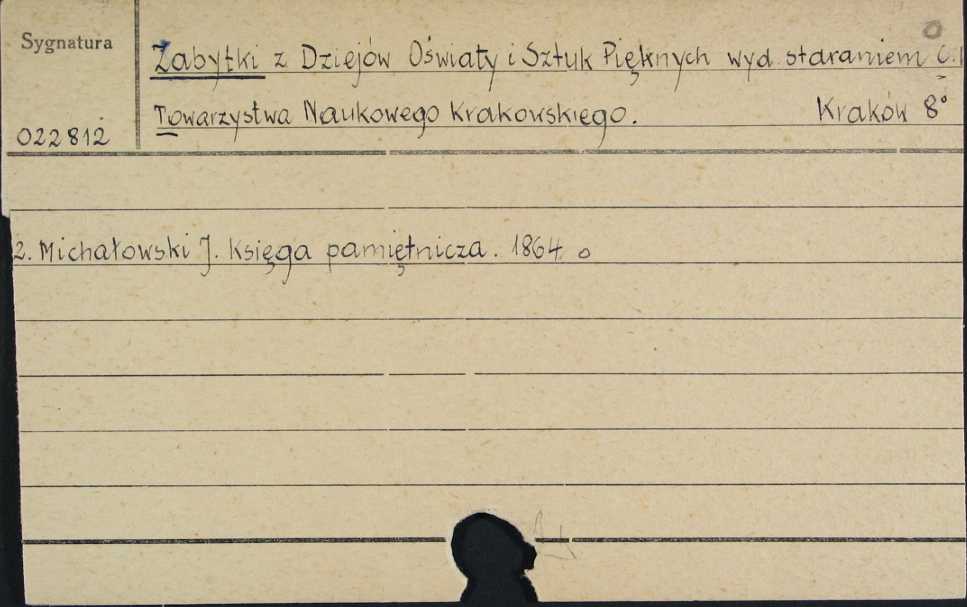 Sygnatura
Zabytki z Dziejów Oświaty i Sztuk Pięknych wyd. staraniem C.
Towarzystwa Naukowego Krakowskiego. Kraków 8°
022812
2. Michałowski J. Księga pamiętnicza. 1864.